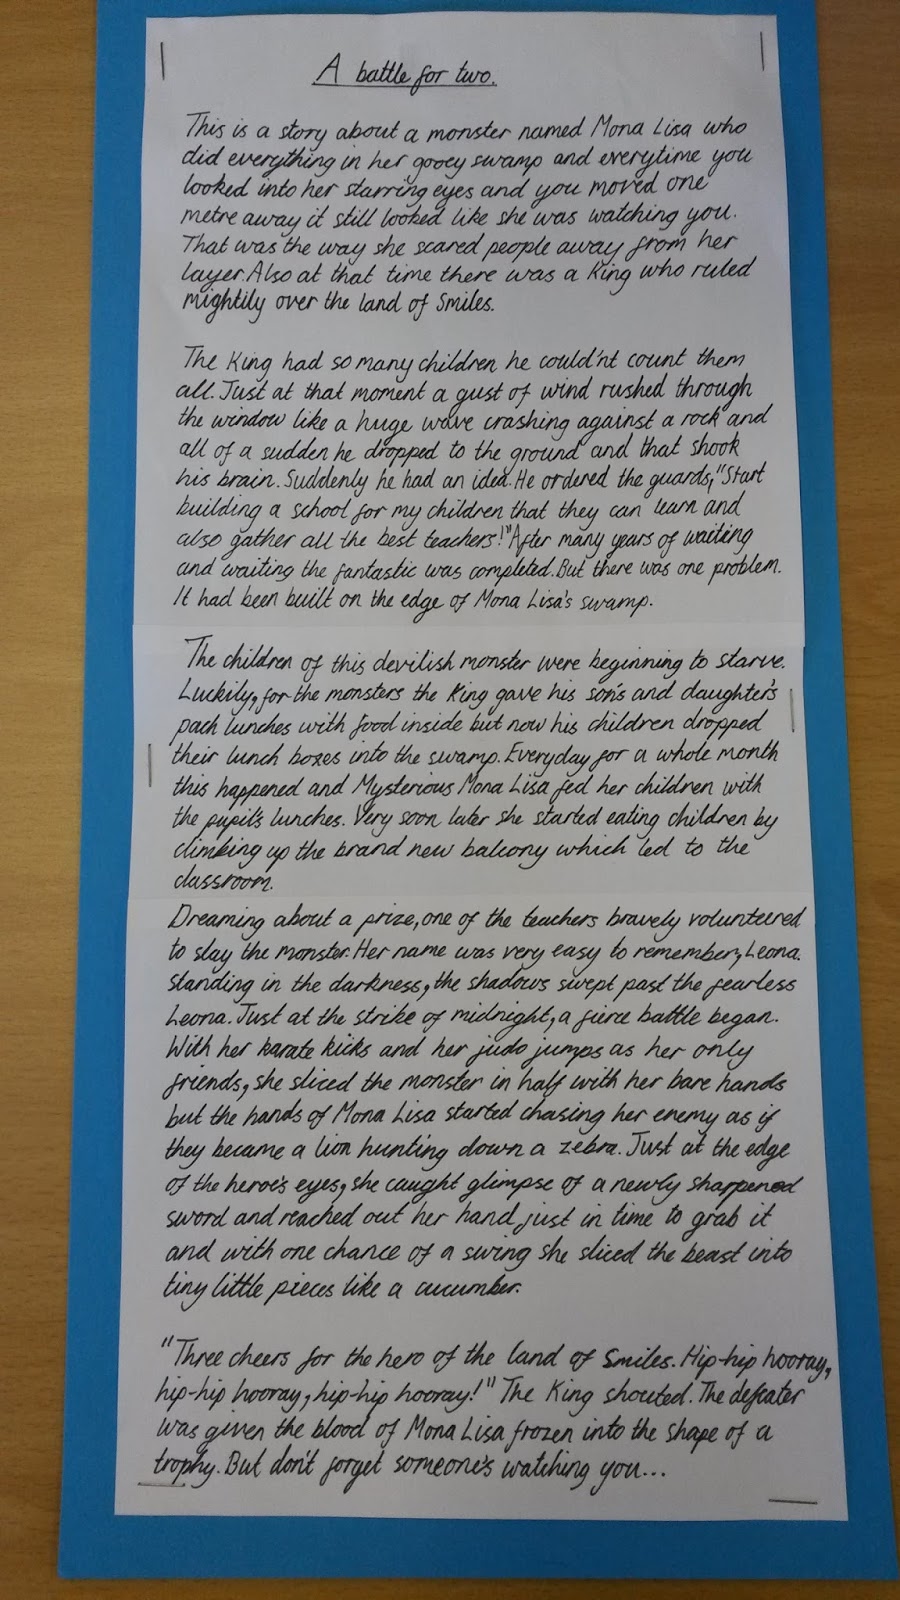 A battle for two.
This is a story about a monster named Mona Lisa who
did everything in her gooey swamp and everytime you
looked into her starring eyes and you moved one
metre away it still looked like she was watching you.
That was the way she scared people away from her
layer. Also at that time there was a King who ruled
mightily over the land of Smiles.
The King had so many children he could'nt count them
all. Just at that moment a gust of wind rushed through
the window like a huge wave crashing against a rock and
all of a sudden he dropped to the ground and that shook
his brain. Suddenly he had an idea. He ordered the guards, "Start
building a school for my children that they can learn and
also gather all the best teachers!" After many years of waiting
and waiting the fantastic was completed. But there was one problem.
It had been built on the edge of Mona Lisa's swamp.
The children of this devilish monster were beginning to starve.
Luckily, for the monsters the King gave his son's and daughter's
pach lunches with food inside but now his children dropped
their lunch boxes into the swamp. Everyday for a whole month
this happened and Mysterious Mona Lisa fed her children with
the pupil's lunches. Very soon later she started eating children by
climbing up the brand new balcony which led to the
classroom.
Dreaming about a prize, one of the teachers bravely volunteered
to slay the monster. Her name was very easy to remember, Leona.
Standing in the darkness, the shadows swept past the fearless
Leona. Just at the strike of midnight, a fierce battle began.
With her karate kicks and her judo jumps as her only
friends, she sliced the monster in half with her bare hands
but the hands of Mona Lisa started chasing her enemy as if
they became a lion hunting down a zebra. Just at the edge
of the heroe's eyes, she caught glimpse of a newly sharpened
sword and reached out her hand just in time to grab it
and with one chance of a swing she sliced the beast into
tiny little pieces like a cucumber.
"Three cheers for the hero of the land of Smiles. Hip-hip hooray,
hip-hip hooray, hip-hip hooray!" The King shouted. The defeater
was given the blood of Mona Lisa frozen into the shape of a
trophy. But don't forget someone's watching you...